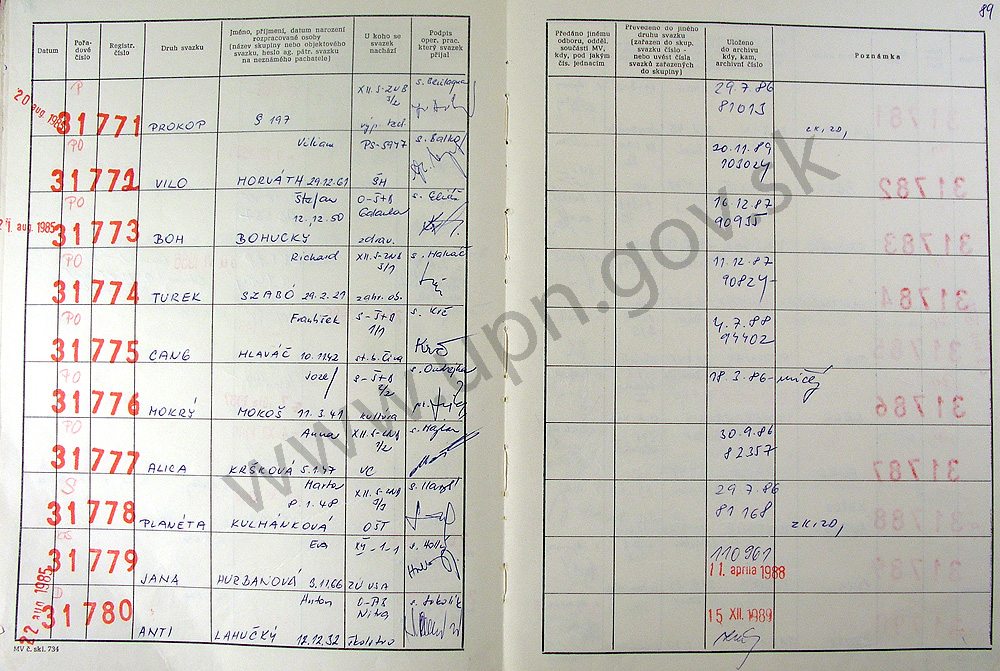 89
Datum
Pořa-
dové
číslo
Registr.
číslo
Druh svazku
Jméno, příjmení, datum narození
rozpracované osoby
(název skupiny nebo objektového
svazku, heslo ag. pátr. svazku
na neznámého pachatele)
U koho se
svazek
nachází
Podpis
oper. prac.
který svazek
přijal
Předáno jinému
odboru, odděl.
součásti MV,
kdy, pod jakým
čís. jednacím
Převedeno do jiného
druhu svazku
(zařazen do skup.
svazku číslo -
nebo uvést čísla
svazků zařazených
do skupiny)
Uloženo
do archivu
kdy, kam,
archivní číslo
Poznámka
20 aug. 1985
P
31771
PROKOP
§ 197
XII.S-ZNB
3/2
29.7.86
81013
PO
31772
VILO
Viliam
HORVÁTH 29.12.61
PS-5947
ŠH
s. Balko
20.11.89
103024
21. aug. 1985
PO
31773
BOH
Štefan
12.12.50
BOHUCKÝ
O-ŠTB
Galanta
zdrav.
16.12.87
90955
PO
31774
TUREK
Richard
SZABÓ 29.2.21
XII.S-ZNB
3/1
zahr. os.
11.12.87
90824
PO
31775
CANG
František
HLAVÁČ 10.1142
S-ŠTB
1/1
s. Krč
Krč
4.7.88
94402
PO
31776
MOKRÝ
Jozef
MOKOŠ 11.3.41
S-ŠTB
2/2
kultura
18.3.86-zničený
PO
31777
ALICA
Anna
KRŠKOVÁ 5.1.47
XII.S-ZNB
VC
30.9.86
82357
S
31778
PLANÉTA
Marta
8.1.48
KULHÁNKOVÁ
XII.S-ZNB
OŠT
29.7.86
81168
31779
JANA
Eva
HURBANOVÁ 9.11.66
-1-1
ZÚ USA
s. Hollý
110961
11. apríla 1988
22 aug 1985
D
31780
ANTI
Anton
LAHUČKÝ 12.12.32
Nitra
školstvo
s. Sokolík
15 XII. 1989
MV č. skl. 734
www.upn.gov.sk